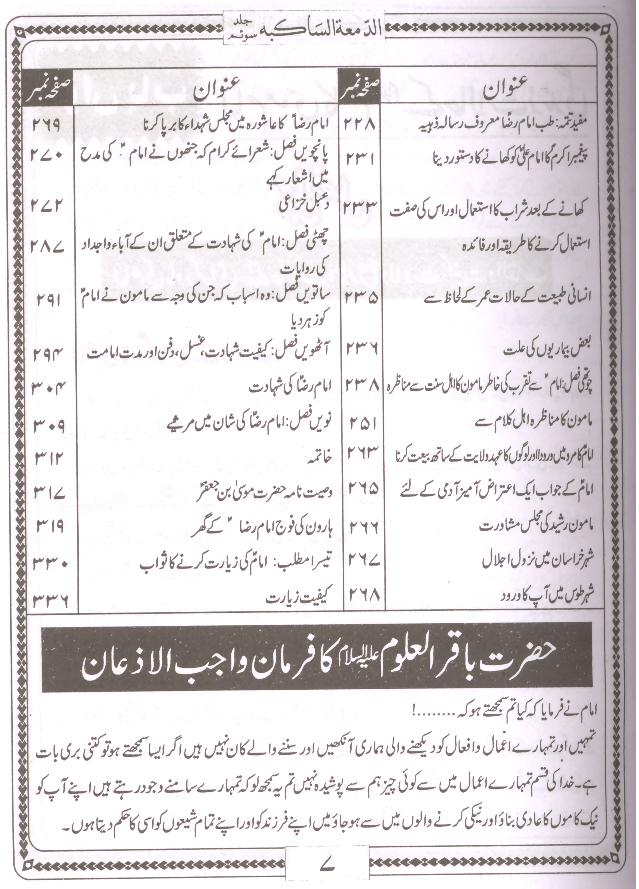 الدمعۃ الساکبہ جلد سوئم
عنوان صفحہ نمبر
مفید تتمہ: طب امام رضاؑ معروف رسالہ ذہبیہ ۲۲۸
پیغمبر اکرمؐ کا امام علیؑ کو کھانے کا دستور دینا ۲۳۱
کھانے کے بعد شراب کا استعمال اور اس کی صفت ۲۳۳
استعمال کرنے کا طریقہ اور فائدہ
انسانی طبیعت کے حالات عمر کے لحاظ سے ۲۳۵
بعض بیماریوں کی علت ۲۳۶
چوتھی فصل: امامؑ سے تقرب کی خاطر مامون کا اہل سنت سے مناظرہ ۲۳۸
مامون کا مناظرہ اہل کلام سے ۲۵۱
امامؑ کا مرو میں ورود اور لوگوں کا عہد ولایت کے ساتھ بیعت کرنا ۲۶۳
امامؑ کے جواب ایک اعتراض آمیز آدمی کے لئے ۲۶۵
مامون رشید کی مجلس مشاورت ۲۶۶
شہر خراسان میں نزول اجلال ۲۶۷
شہر طوس میں آپ کا ورود ۲۶۸
عنوان صفحہ نمبر
امام رضاؑ کا عاشورہ میں مجلس شہداء کا برپا کرنا ۲۶۹
پانچویں فصل: شعرائے کرام کہ جنھوں نے امامؑ کی مدح ۲۷۰
میں اشعار کہے
دعبل خزاعی ۲۷۲
چھٹی فصل: امامؑ کی شہادت کے متعلق ان کے آباء و اجداد ۲۸۷
کی روایات
ساتویں فصل: وہ اسباب کہ جن کی وجہ سے مامون نے امامؑ ۲۹۱
کو زہر دیا
آٹھویں فصل: کیفیت شہادت، غسل، دفن اور مدت امامت ۲۹۴
امام رضاؑ کی شہادت ۳۰۴
نویں فصل: امام رضاؑ کی شان میں مرثیے ۳۰۹
خاتمہ ۳۱۲
وصیت نامہ حضرت موسیٰ بن جعفرؑ ۳۱۷
ہارون کی فوج امام رضاؑ کے گھر ۳۱۹
تیسرا مطلب: امامؑ کی زیارت کرنے کا ثواب ۳۳۰
کیفیت زیارت ۳۳۶
حضرت باقر العلوم علیہ السلام کا فرمان واجب الاذعان
امام نے فرمایا کہ کیا تم سمجھتے ہو کہ ........!
تمہیں اور تمہارے اعمال و افعال کو دیکھنے والی ہماری آنکھیں اور سننے والے کان نہیں ہیں اگر ایسا سمجھتے ہو تو کتنی بری بات
ہے۔ خدا کی قسم تمہارے اعمال میں سے کوئی چیز ہم سے پوشیدہ نہیں تم یہ سمجھ لو کہ تمہارے سامنے وجود رہتے ہیں اپنے آپ کو
نیک کاموں کا عادی بناؤ اور نیکی کرنے والوں میں سے ہو جاؤ میں اپنے فرزند کو اور اپنے تمام شیعوں کو اسی کا حکم دیتا ہوں۔
۷